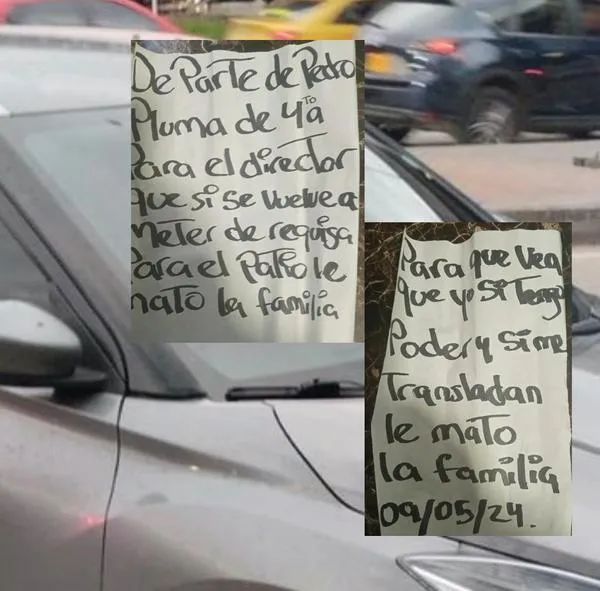 De Parte de Pedro
Pluma de 4ta
Para el director
que si se vuelve a
Meter de requisa
Para el Patio le
mato la familia
Para que Vea
que yo Si Tengo
Poder y Si me
Transladan
le maTo
la familia
09/05/24.